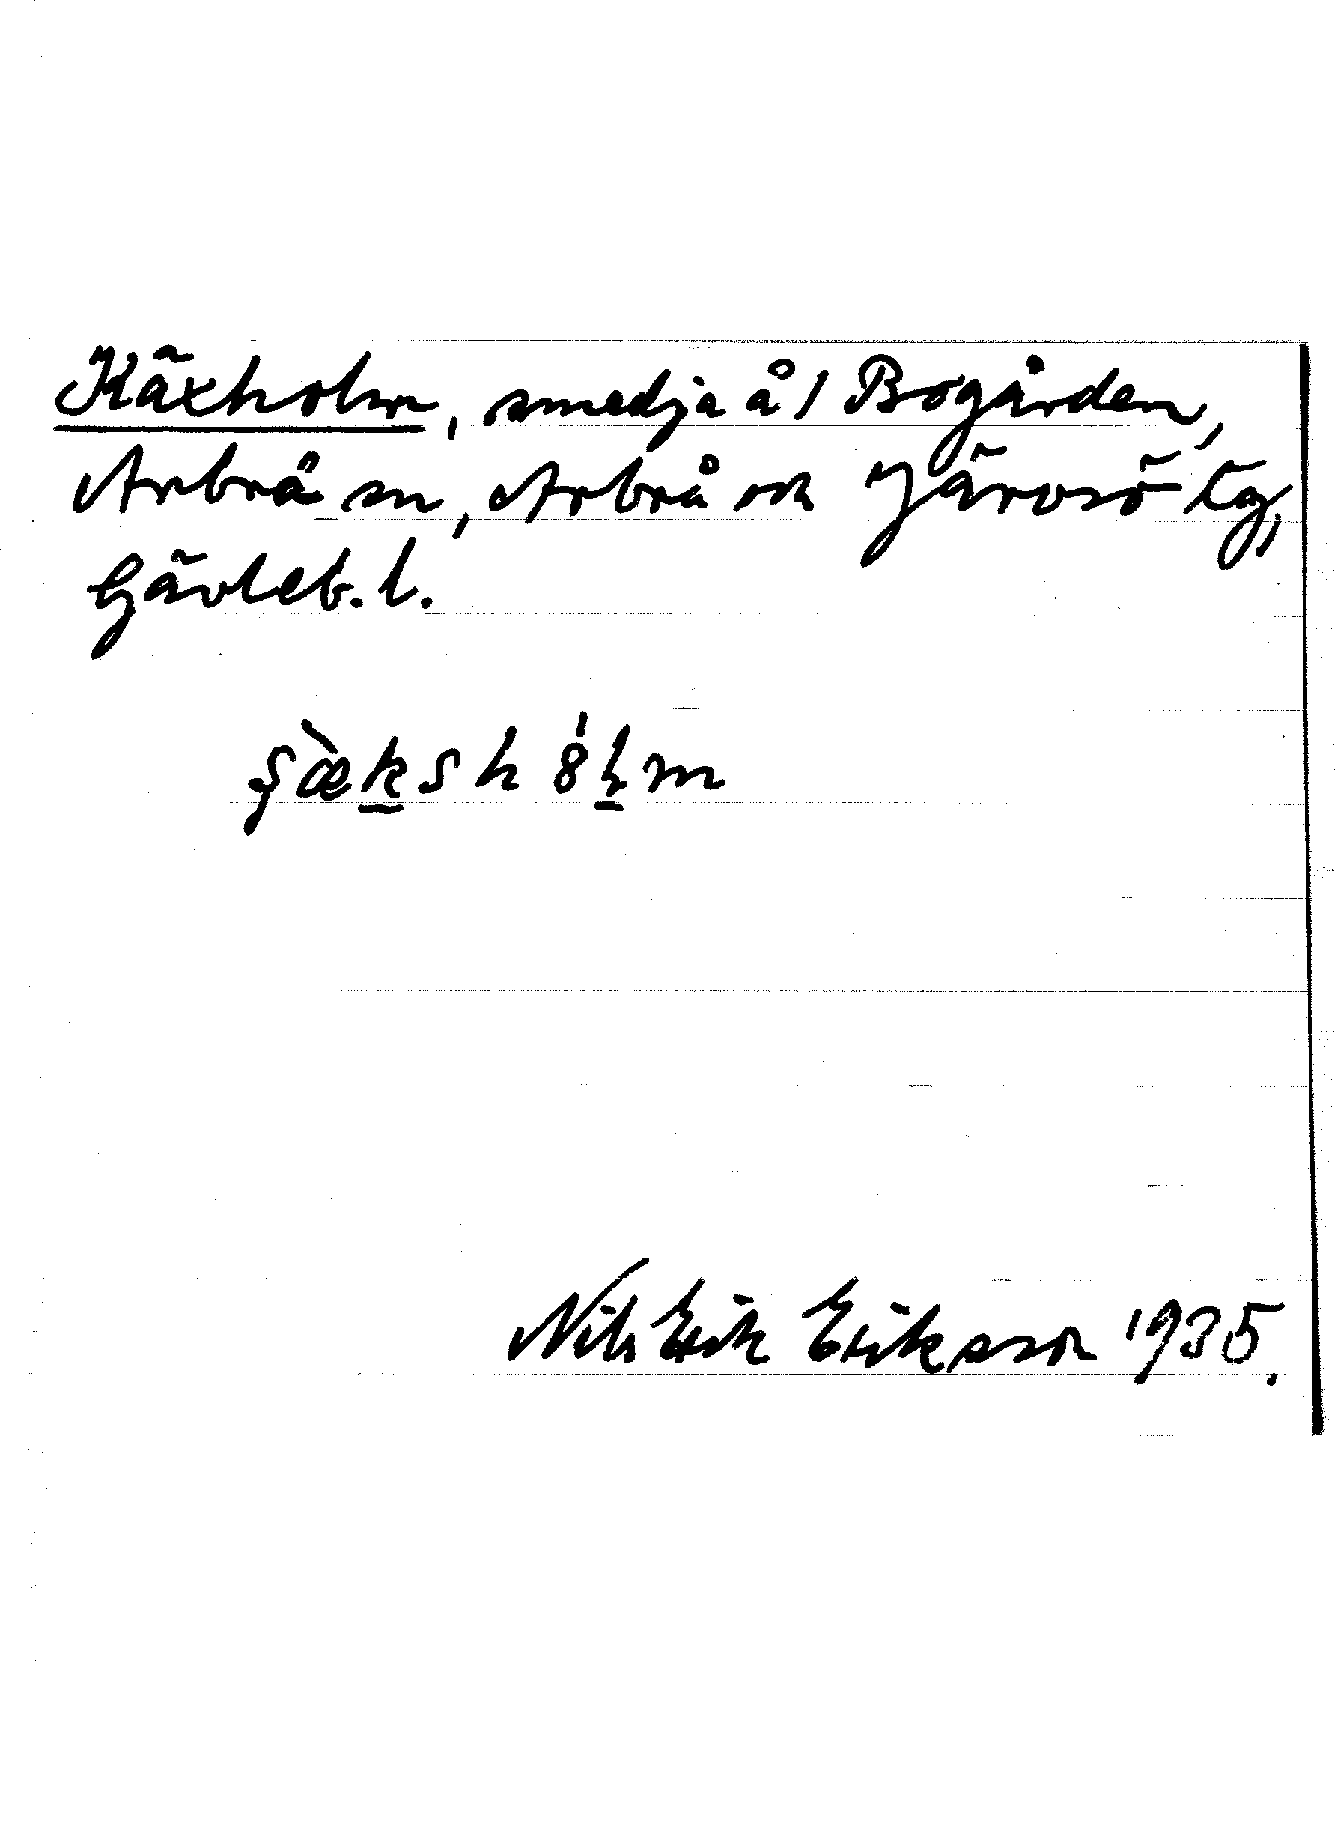 Käxholm, smedja å 1 Bogården,
Arbrå sn, Arbrå och Järvsö tg,
Gävleb. l.
Nils Erik Eriksson 1935.